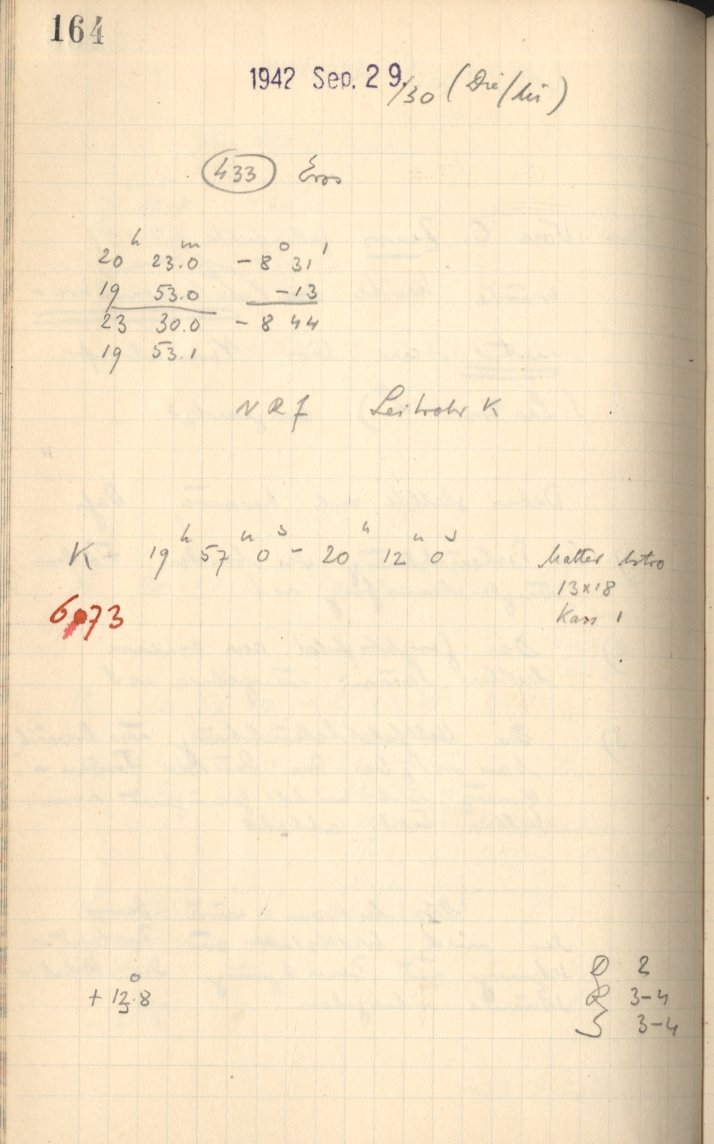 164
1942 Sep. 29./30 (Die/Mi)
433 Eros
20h 23.0m -8° 31'
19 53.0 -13
23 30.0 -8 44
19 53.1
N R f Leitrohr K
K 19h 57m 0s - 20h 12m 0s Matter Astro
13x18
6073 Kass 1
+ 12.8°
D 2
R 3-4
S 3-4